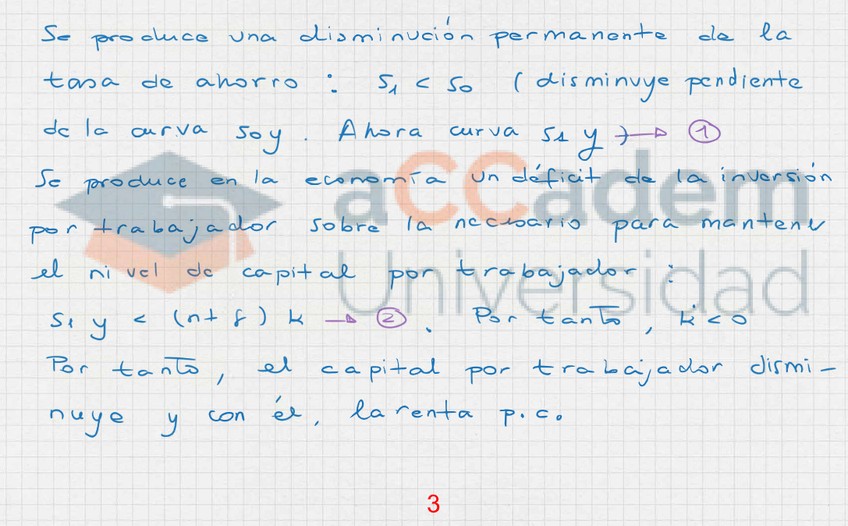 Se produce una disminución permanente de la
tasa de ahorro : s₁ < s₀ (disminuye pendiente
de la curva s₀y. Ahora curva s₁ y) → ①
Se produce en la economía un déficit de la inversión
por trabajador sobre lo necesario para mantener
el nivel de capital por trabajador :
s₁ y < (n+δ) k → ②. Por tanto, k̇<0
Por tanto, el capital por trabajador dismi-
nuye y con él, la renta p.c.
aCCadem
Universidad
3